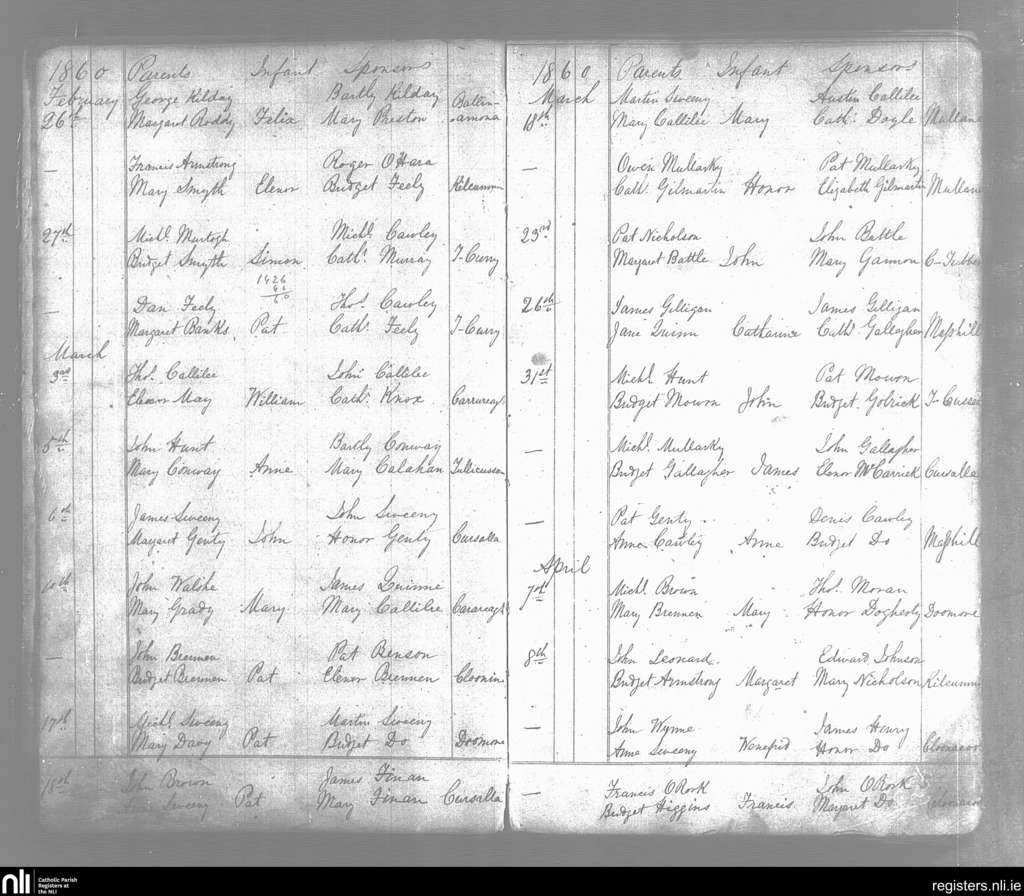 1860 Parents Infant Sponsors
February George Kilday Bartly Kilday Ballin-
26th Margaret Roddy Felix Mary Preston -amona
— Francis Armstrong Roger O'Hara
Mary Smyth Elenor Bridget Feely Kilcumm
27th Michl. Murtogh Michl. Cawley
Bridget Smyth Simon Cath. Murray T-Curry
1426
60
— Dan Feely Thos. Cawley
Margaret Banks Pat Cath. Feely T-Curry
March
3rd Thos. Callilee John Callilee
Eleanor May William Cath. Knox Carrureagh
5th John Hunt Bartly Conway
Mary Conway Anne Mary Calahan Tullicussan
6th James Sweeny John Sweeny
Margaret Genty John Honor Genty Cursalla
10th John Walshe James Quinne
Mary Grady Mary Mary Callilee Carareagh
— John Brennen Pat Benson
Bridget Brennen Pat Elenor Brennen Cloonin
17th Michl. Sweeny Martin Sweeny
Mary Davy Pat Bridget Do Doomore
18th John Brown James Finan
Sweeny Pat Mary Finan Cursalla
1860 Parents Infant Sponsors
March Martin Sweeny Austin Callilee
18th Mary Callilee Mary Cath: Doyle Mullane
— Owen Mullarky Pat Mullarky
Cath. Gilmartin Honor Elizabeth Gilmartin Mullan
23rd Pat Nicholson John Battle
Margaret Battle John Mary Gannon C-Tubber
26th James Gilligan James Gilligan
Jane Quinn Catharine Cath. Gallagher Masshill
31st Michl. Hunt Pat Mowrn
Bridget Mowrn John Bridget Golrick T-Cussen
— Michl. Mullarky John Gallagher
Bridget Gallagher James Elenor McCarrick Cursalla
— Pat Genty Denis Cawley
Anne Cawley Anne Bridget Do Masshill
April
7th Michl. Brown Thos. Moran
Mary Brennen Mary Honor Dogherty Doomore
8th John Leonard. Edward Johnson
Bridget Armstrong Margaret Mary Nicholson Kilcummin
— John Wynne James Henry
Anne Sweeny Wenefrid Honor Do Cloonacool
— Francis O'Rork John O'Rork
Bridget Higgins Francis Margaret Do Cloonacool
nli Catholic Parish
Registers at
the NLI
registers.nli.ie